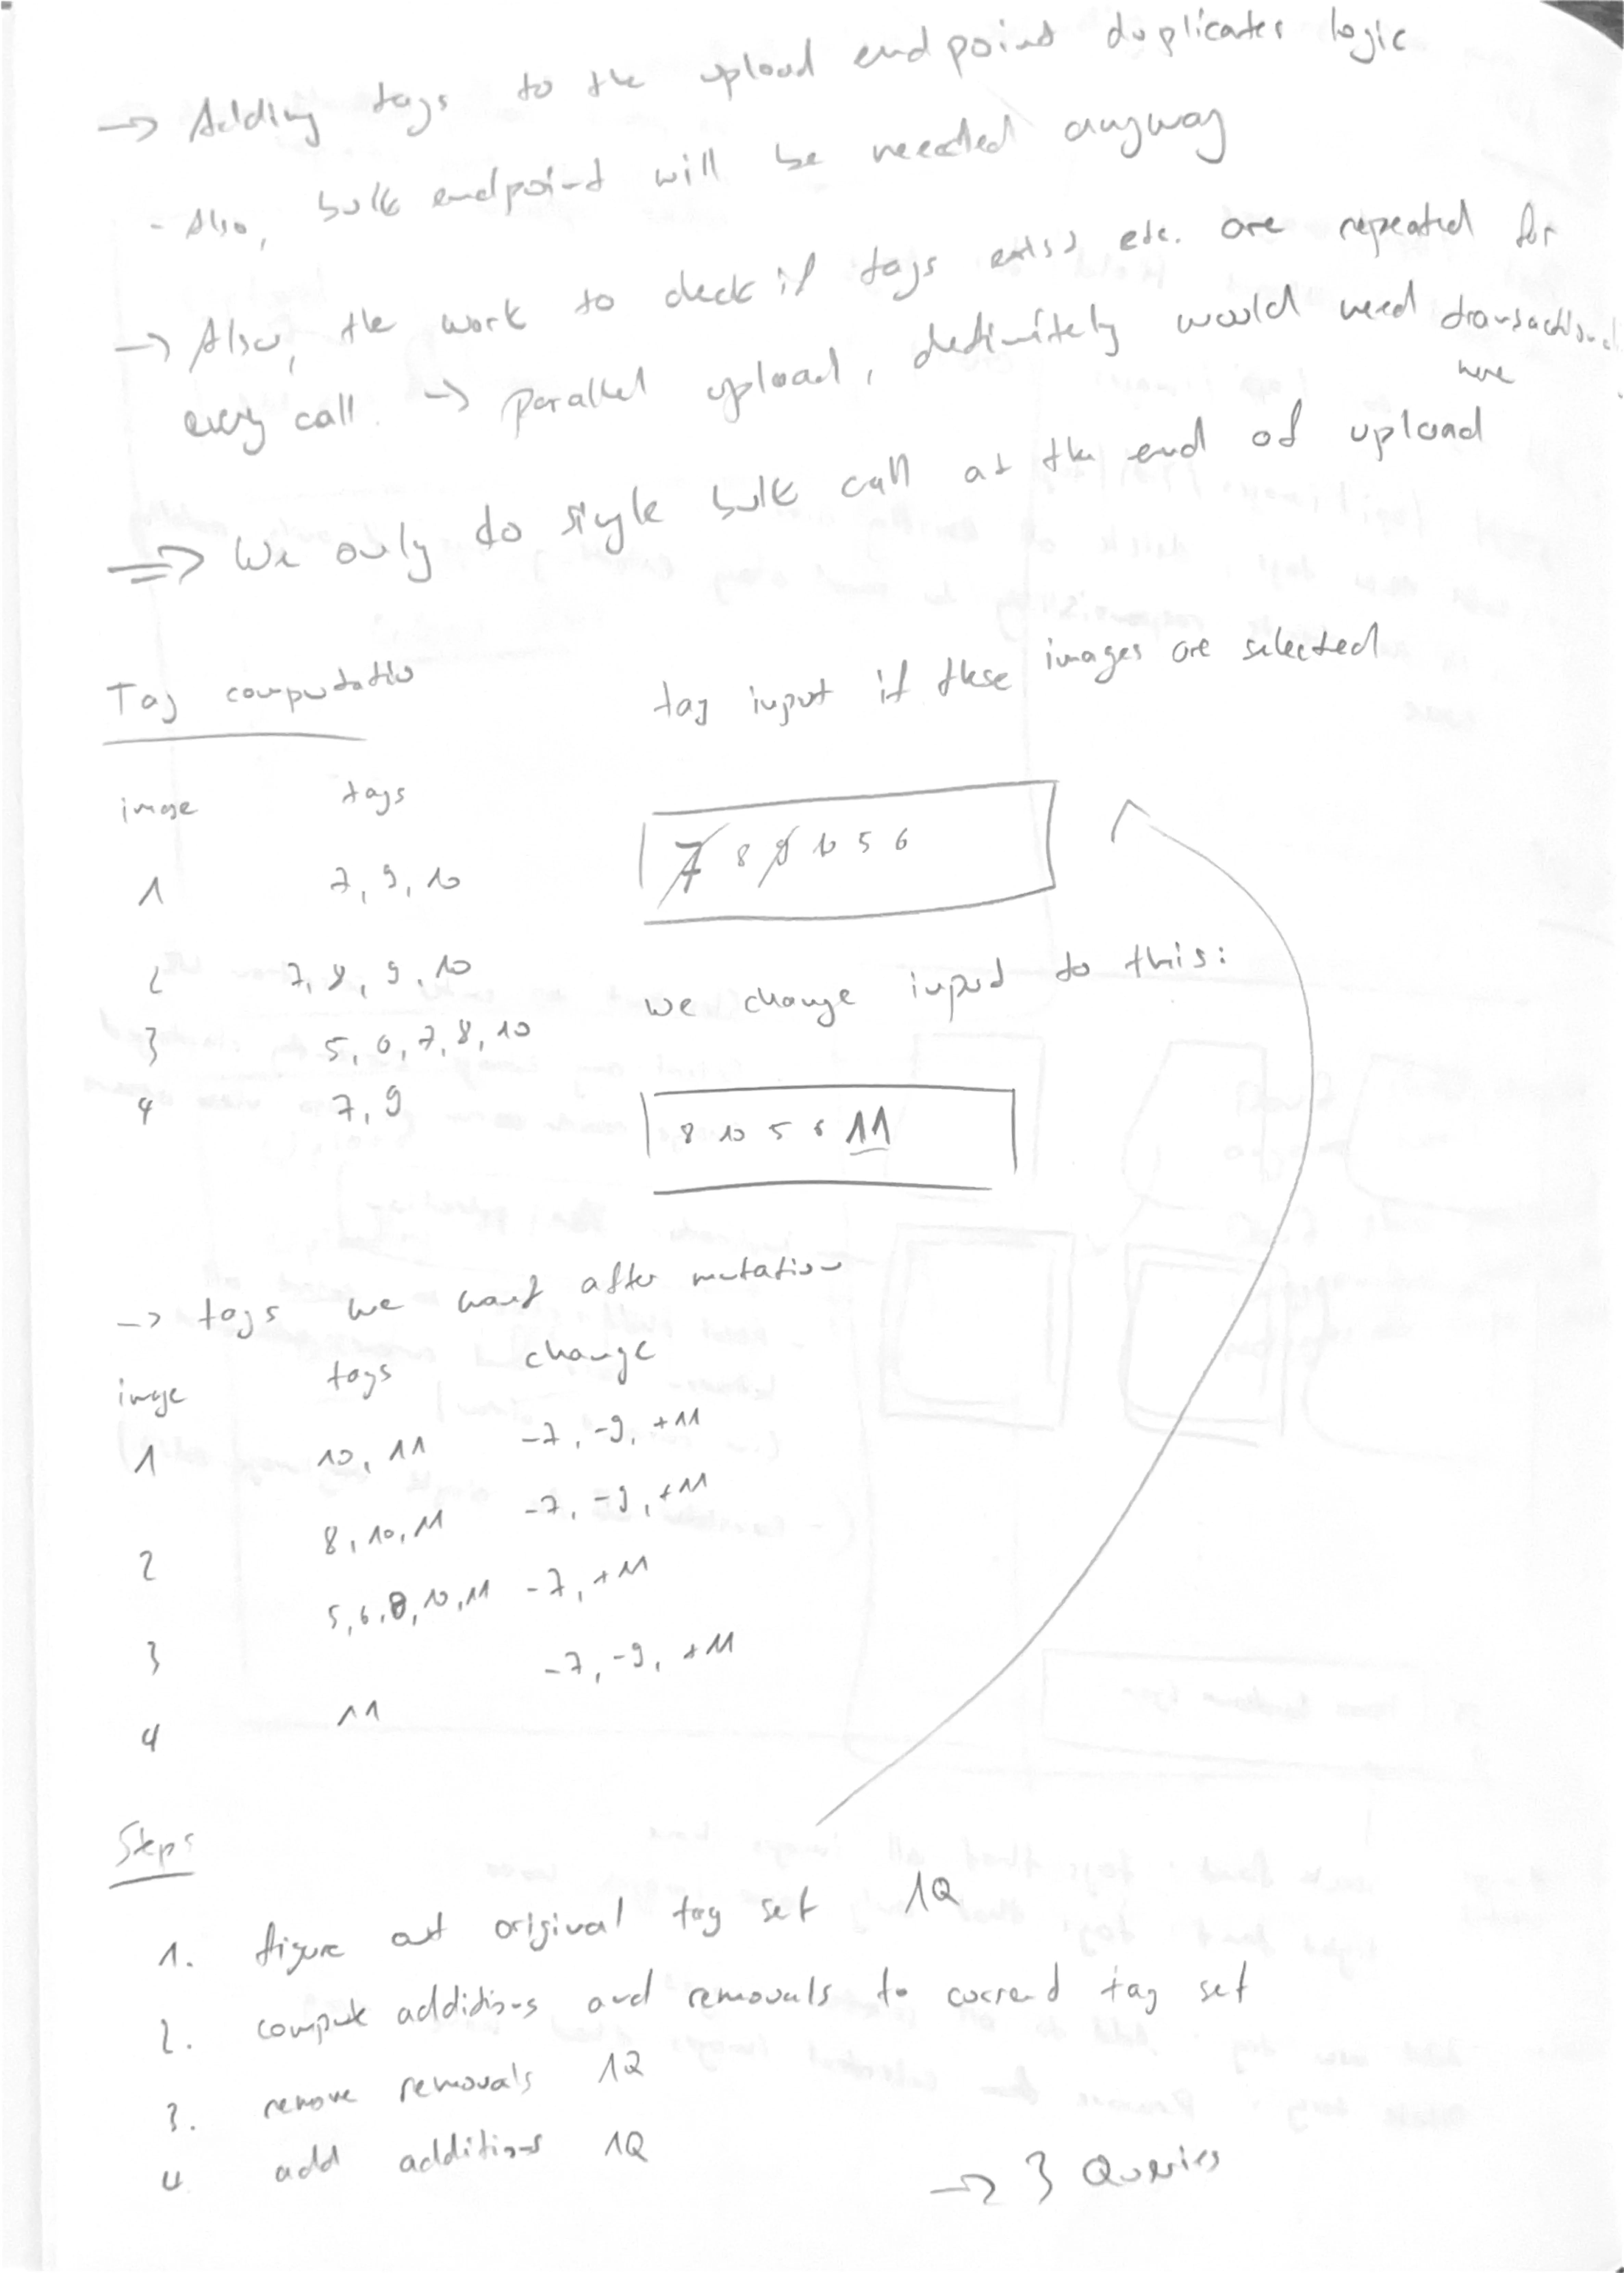 → Adding tags to the upload endpoint duplicates logic
- Also, bulk endpoint will be needed anyway
→ Also, the work to check if tags exist etc. are repeated for
every call. → parallel upload, definitely would need transactional
here
⇒ We only do single bulk call at the end of upload
Tag computatio
tag input if these images are selected
image tags
7 8 9 10 5 6
1 7, 9, 10
2 7, 8, 9, 10
we change input to this:
3 5, 6, 7, 8, 10
4 7, 9
8 10 5 6 11
→ tags we want after mutation
image tags change
1 10, 11 -7, -9, +11
2 8, 10, 11 -7, -9, +11
3 5, 6, 8, 10, 11 -7, +11
4 11 -7, -9, +11
Steps
1. figure out original tag set 1Q
2. compute additions and removals to current tag set
3. remove removals 1Q
4 add additions 1Q
→ 3 Queries